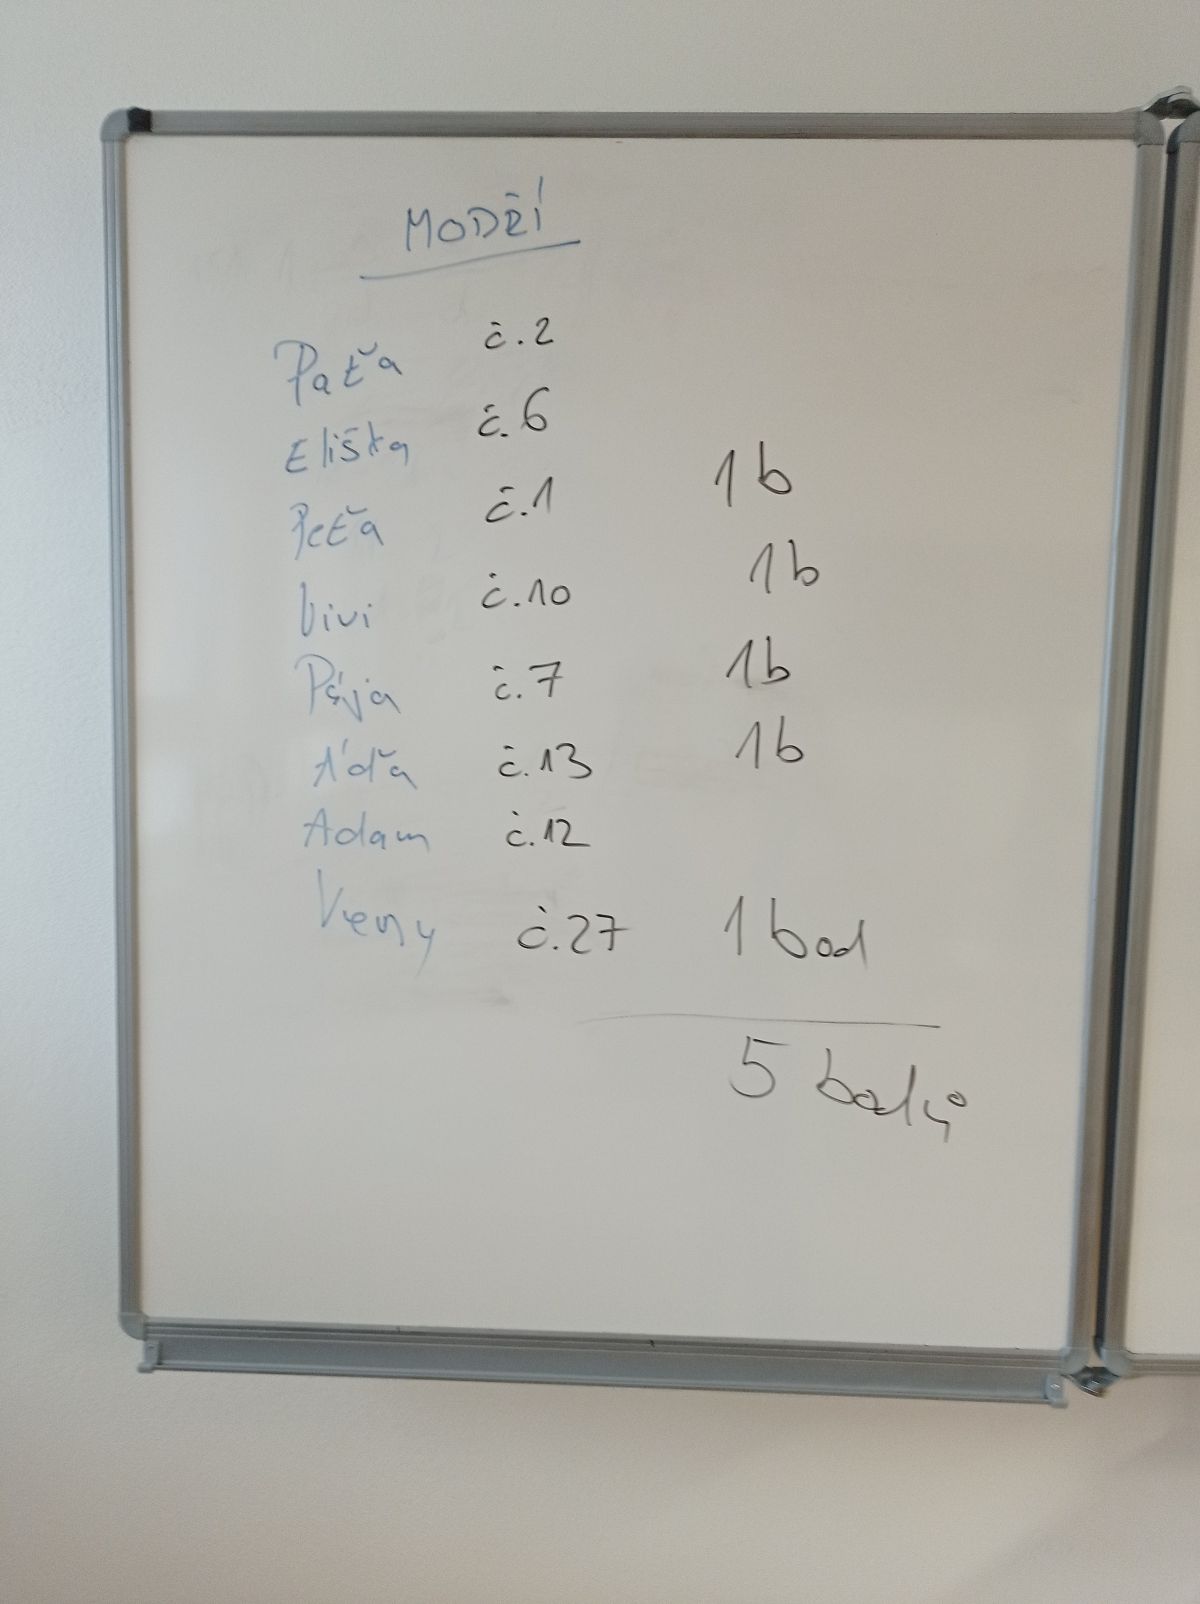 MODŘÍ
Paťa č.2
Eliška č.6
Peťa č.1 1b
Vivi č.10 1b
Pája č.7 1b
Áďa č.13 1b
Adam č.12
Veny č.27 1 bod
5 bodů